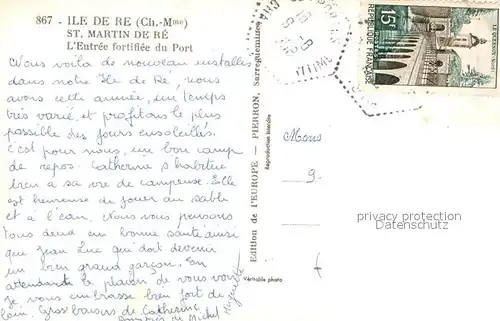 867 - ILE DE RE (Ch.-Mme)
ST. MARTIN DE RÉ
L'Entrée fortifiée du Port
Nous voila de nouveau installés
dans notre Ile de Ré, nous
avons cette année, un temps
très varié et profitons le plus
possible des jours ensoleillés.
c'est pour nous, un bon camp
de repos. Catherine s'habitue
bien a sa vie de campeuse. Elle
est heureuse de jouer au sable
et à l'eau. Nous vous pensons
tous deux en bonne santé ainsi
que Jean Luc qui doit devenir
un bien grand garçon. En
attendant le plaisir de vous voir
je vous embrasse bien fort de
loin. Gros baisers de Catherine
Amitiés de Michel
Huguette
Edition de l'EUROPE - PIERRON, Sarreguemines
Reproduction interdite
Véritable photo
Mons
9
15F
REPUBLIQUE FRANÇAISE
privacy protection
Datenschutz